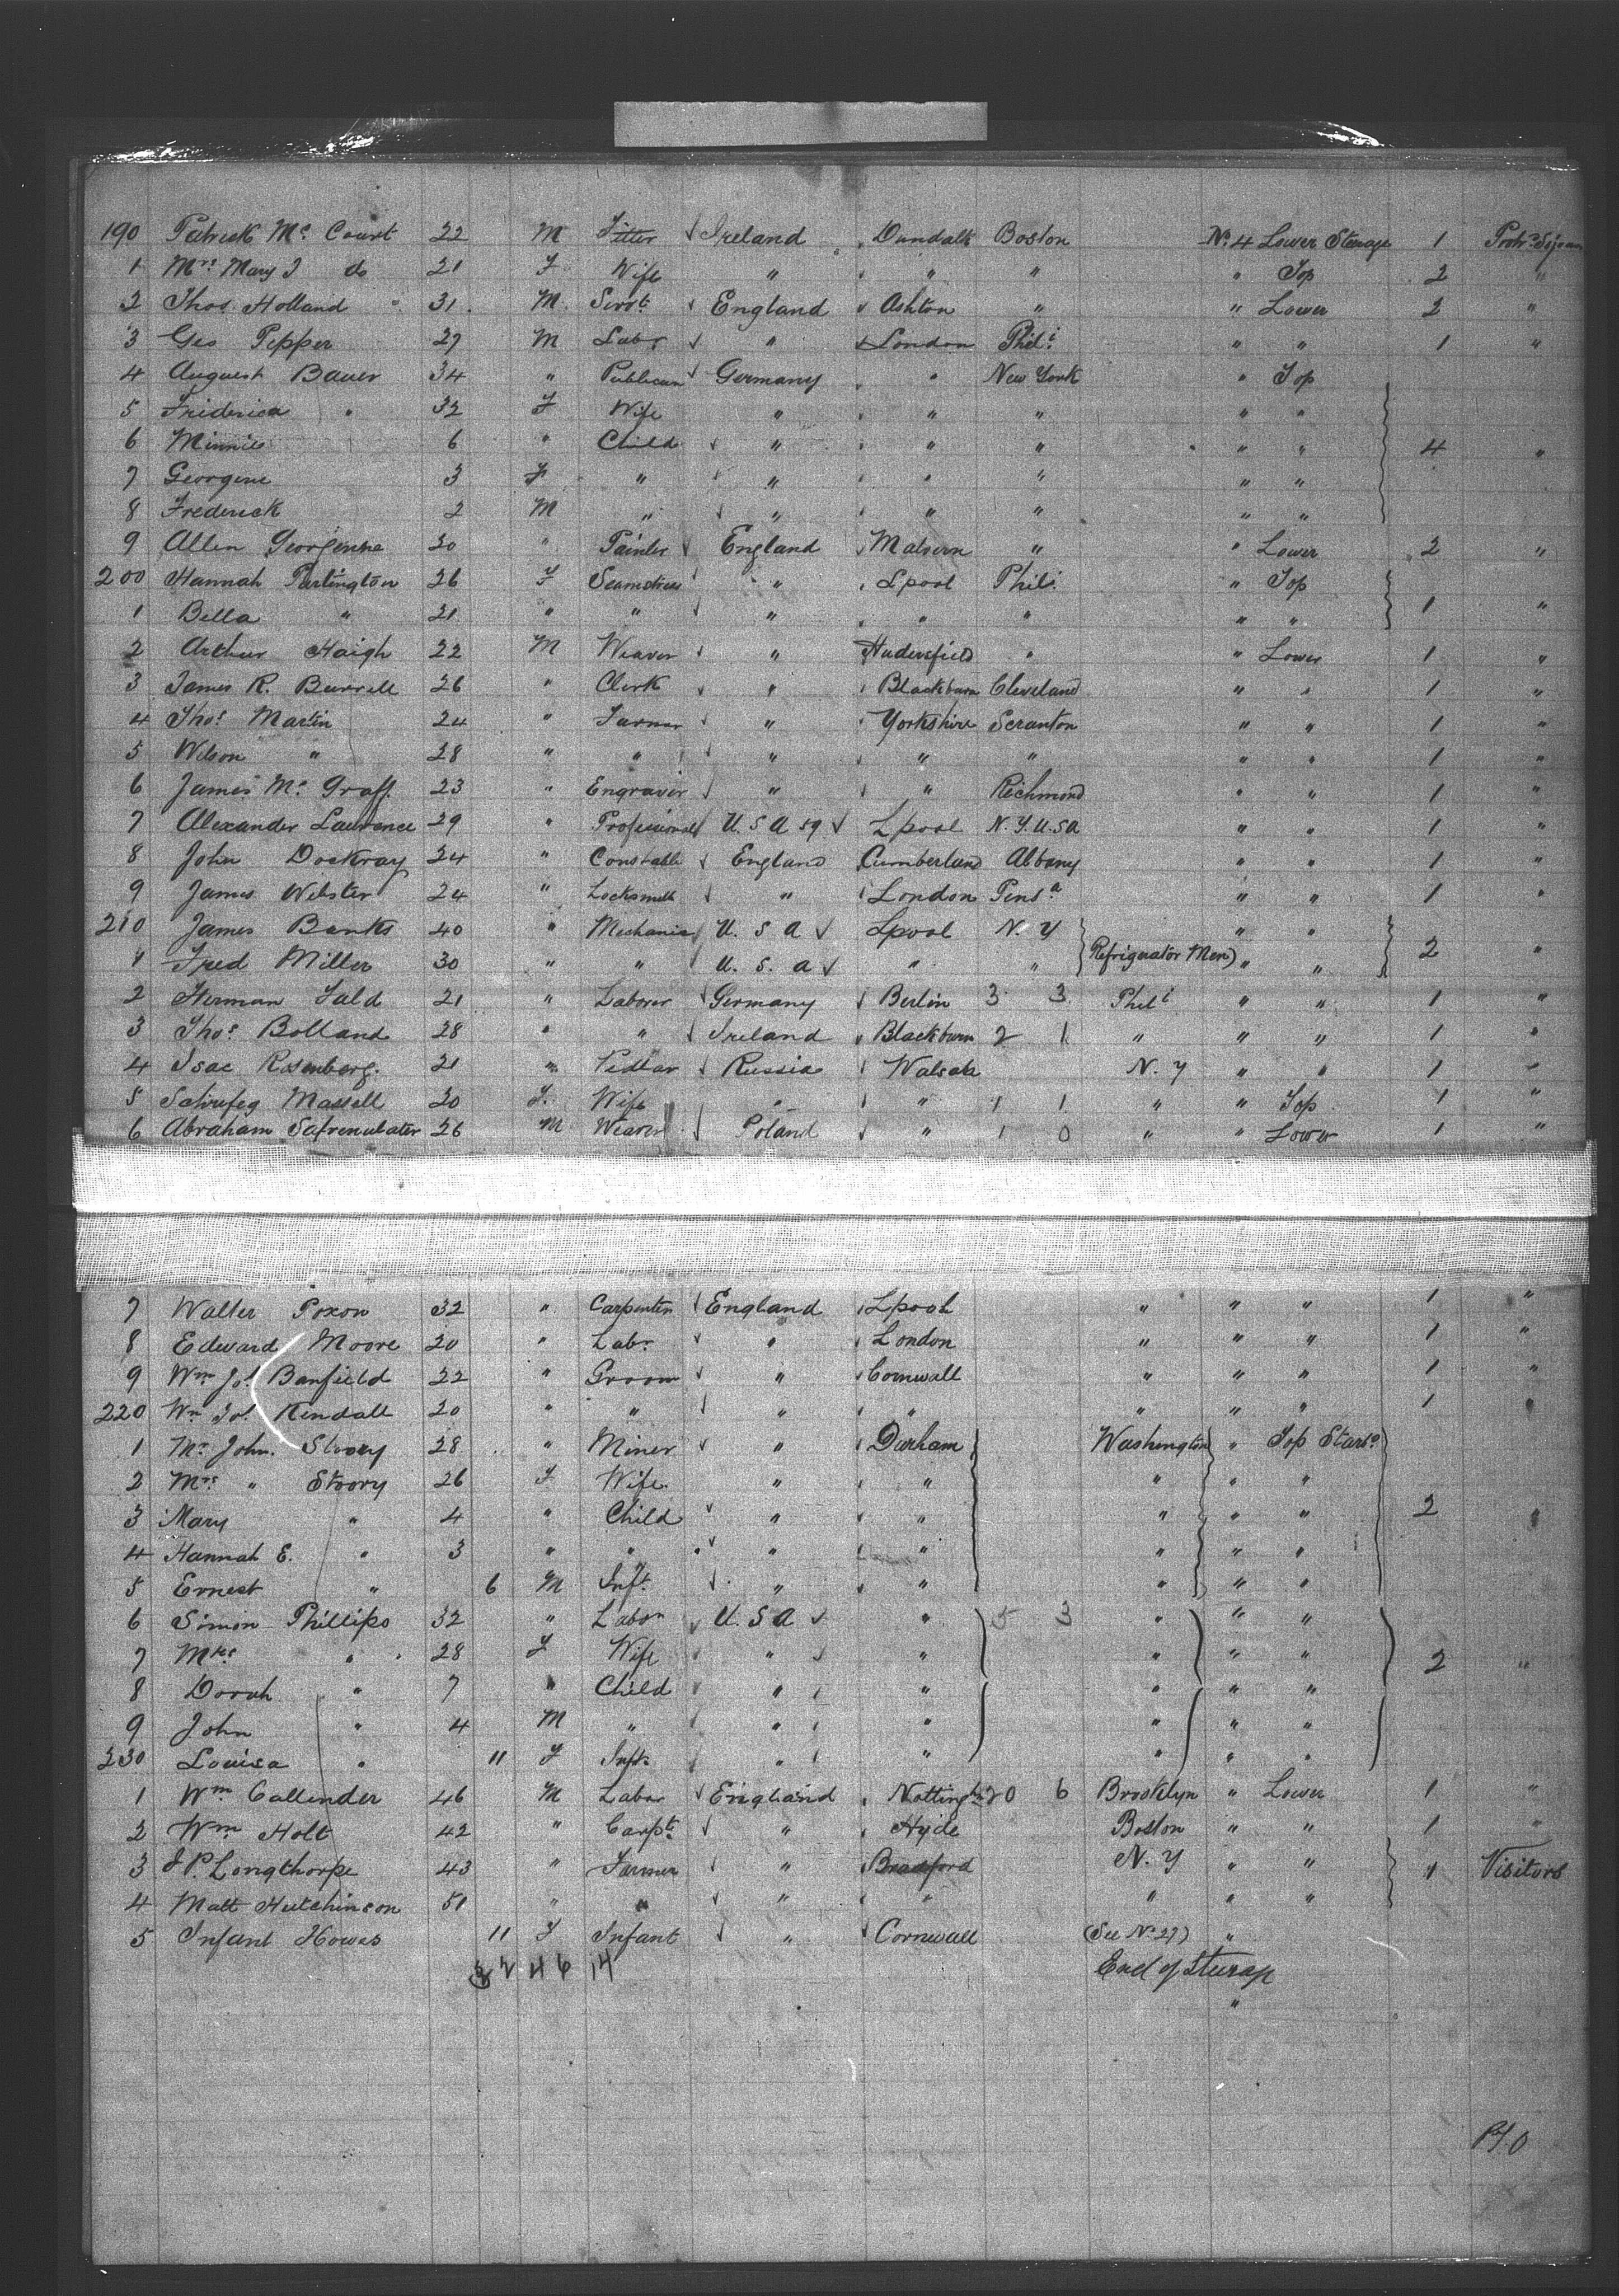 190 Patrick Mc Court 22 M Fitter Ireland Dundalk Boston No. 4 Lower Steerage 1
1 Mrs Mary J do 21 F Wife " " " " Top 2 "
2 Thos. Holland 31 M Servt. England Ashton " " Lower 2 "
3 Geo Pepper 27 M Labr " London Phila " " 1 "
4 August Bauer 34 " Publican Germany " New York " Top
5 Friderica " 32 F Wife " " " " "
6 Minnie 6 " Child " " " " " 4 "
7 Georgene 3 F " " " " " "
8 Frederick 2 M " " " " " "
9 Allen 30 " Painter England Malvern " " Lower 2 "
200 Hannah Partington 26 F Seamstress " Lpool Phil. " Top
1 Bella " 21 " " " " " " " 1 "
2 Arthur Haigh 22 M Weaver " Hudersfield " " Lower 1 "
3 James R. Burrell 26 " Clerk " Blackburn Cleveland " " 1 "
4 Thos. Martin 24 " Farmer " Yorkshire Scranton " " 1 "
5 Wilson " 28 " " " " " " " 1 "
6 James Mc Graff. 23 " Engraver " " Richmond " " 1 "
7 Alexander Laurence 29 " Professional U.S.A Lpool N.Y.U.SA " " 1 "
8 John Dockray 24 " Constable England Cumberland Albany " " 1 "
9 James Webster 24 " Locksmith " London Pensa " " 1 "
210 James Banks 40 " Mechanic U.S.A Lpool N.Y " "
1 Fred Miller 30 " " U.S.A " " (Refrigerator Men) " " 2 "
2 Herman Fald 21 " Laborer Germany Berlin 3 3 Phila " " 1 "
3 Thos Bolland 28 " " Ireland Blackburn 2 1 " " " 1 "
4 Isac Rosenberg. 21 " Pedlar Russia N.Y " " 1 "
5 Massell 20 F. Wife " " 1 1 " " Top 1 "
6 Abraham 26 M Weaver Poland " 1 0 " " Lower 1 "
7 Walter Poxon 32 " Carpenter England Lpool " " " 1 "
8 Edward Moore 20 " Labr " London " " " 1 "
9 Wm Jo. Banfield 22 " Groom " Cornwall " " " 1 "
220 Wm Jo. Kendall 20 " " " " " " " 1 "
1 Mr John. Stoory 28 " Miner " Durham Washington " Top
2 Mrs " Stoory 26 F Wife " " " " "
3 Mary " 4 " Child " " " " " 2 "
4 Hannah E. " 3 " " " " " " "
5 Ernest " 6 M Inft. " " " " "
6 Simon Phillips 32 " Labor U.S.A " 5 3 " " "
7 Mrs " 28 F Wife " " " " " 2 "
8 Dorah " 7 " Child " " " " "
9 John " 4 M " " " " " "
230 Louisa " 11 F Inft. " " " " "
1 Wm Callender 46 M Labor England 20 6 Brooklyn " Lower 1 "
2 Wm Holt 42 " Carpt. " Hyde Boston " " 1 "
3 J P. Longthorpe 43 " Farmer " Bradford N.Y " " 1 Visitors
4 Matt Hutchinson 51 " " " " " " "
5 Infant Howes 11 F Infant " Cornwall (See No. 27) "
46 14 End of Steerage
"
P.T.O